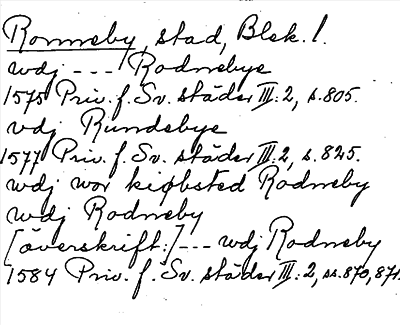 Ronneby, stad, Blek. l.
wdj --- Rodnebye
1575 Priv. f. Sv. städer III: 2, s. 805.
vdj Rundebye
1577 Priv. f. Sv. städer III: 2, s. 825.
wdj wor kiøbsted Rodneby
wdj Rodneby
[överskrift:] --- wdj Rodneby
1584 Priv. f. Sv. städer III: 2, ss. 870, 871.